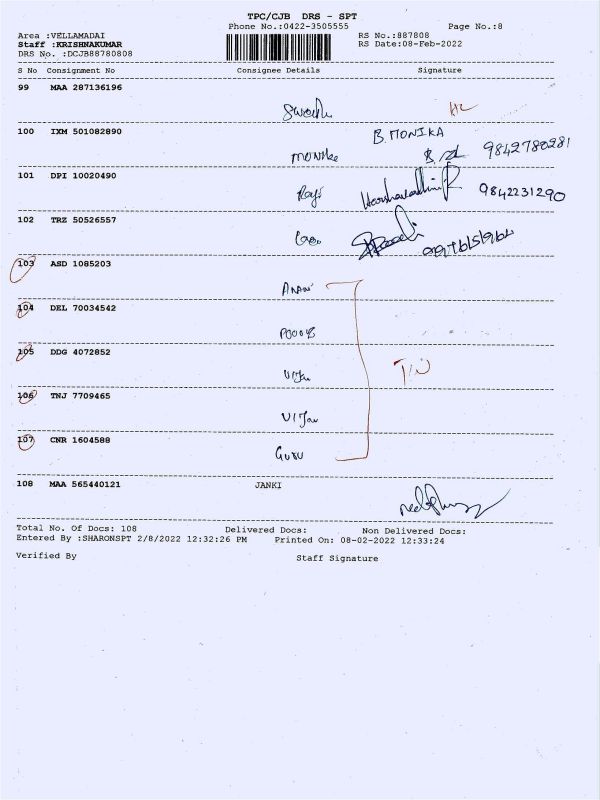 TPC/CJB DRS - SPT
Phone No.:0422-3505555 Page No.:8
Area :VELLAMADAI RS No.:887808
Staff :KRISHNAKUMAR RS Date:08-Feb-2022
DRS No. :DCJB88780808
S No Consignment No Consignee Details Signature
99 MAA 287136196
100 IXM 501082890
B. MONIKA
9842780281
101 DPI 10020490
9842231290
102 TRZ 50526557
103 ASD 1085203
104 DEL 70034542
105 DDG 4072852
106 TNJ 7709465
107 CNR 1604588
GURU
108 MAA 565440121 JANKI
Total No. Of Docs: 108 Delivered Docs: Non Delivered Docs:
Entered By :SHARONSPT 2/8/2022 12:32:26 PM Printed On: 08-02-2022 12:33:24
Verified By Staff Signature